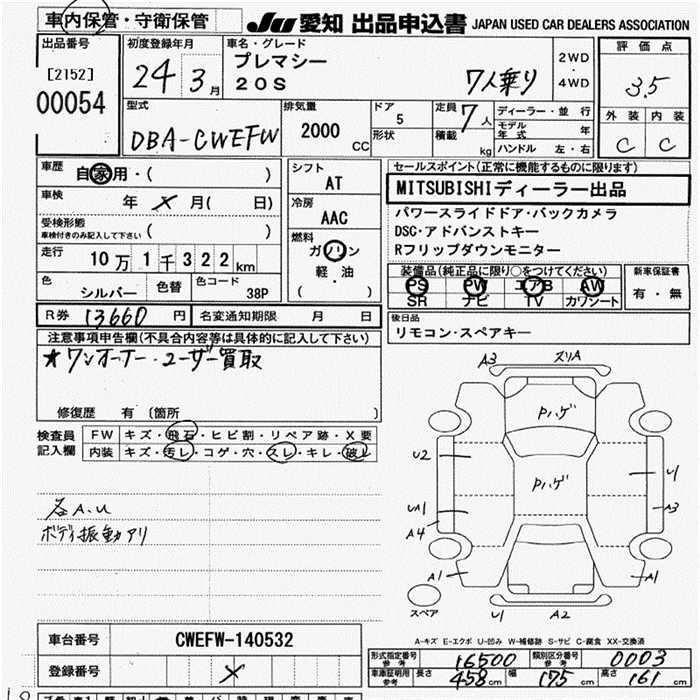 車内保管・守衛保管
JU 愛知 出品申込書 JAPAN USED CAR DEALERS ASSOCIATION
出品番号
[2152]
00054
初度登録年月
24年3月
車名・グレード
プレマシー
20S
7人乗り
2WD
4WD
評価点
3.5
外装 内装
C C
型式
DBA-CWEFW
排気量
2000 CC
ドア
5
形状
定員
7人
積載 kg
ディーラー・並行
モデル年式 年
ハンドル 左・右
車歴
自家用・( )
車検
年 × 月( 日)
受検形態
車検付きのみ記入して下さい ( )
走行
10万1千322km
色
シルバー
色替
色コード
38P
シフト
AT
冷房
AAC
燃料
ガソリン
軽・油
( )
セールスポイント(正常に機能するものに限ります)
MITSUBISHIディーラー出品
パワースライドドア・バックカメラ
DSC・アドバンストキー
Rフリップダウンモニター
装備品(純正品に限り○をつけてください)
PS PW エアB AW
SR ナビ TV カワシート
新車保証書
有・無
後日品
リモコン・スペアキー
R券 13660円
名変通知期限 月 日
注意事項申告欄(不具合内容等は具体的に記入して下さい)
★ワンオーナー・ユーザー買取
修復歴 有 (箇所 )
検査員記入欄
FW キズ・飛石・ヒビ割・リペア跡・X要
内装 キズ・汚レ・コゲ・穴・スレ・キレ・破レ
各A.U
ボディ振動アリ
A3 スリA
Pハゲ
U2
Pハゲ
U1
UA1
A3
A4
A1
A1
スペア
U1 A2
A-キズ E-エクボ U-凹み W-補修跡 S-サビ C-腐食 XX-交換済
車台番号 CWEFW-140532
登録番号 ×
形式指定番号 参考 16500
類別区分番号 参考 0003
車庫証明用 参考 長さ 458cm 幅 175cm 高さ 161cm